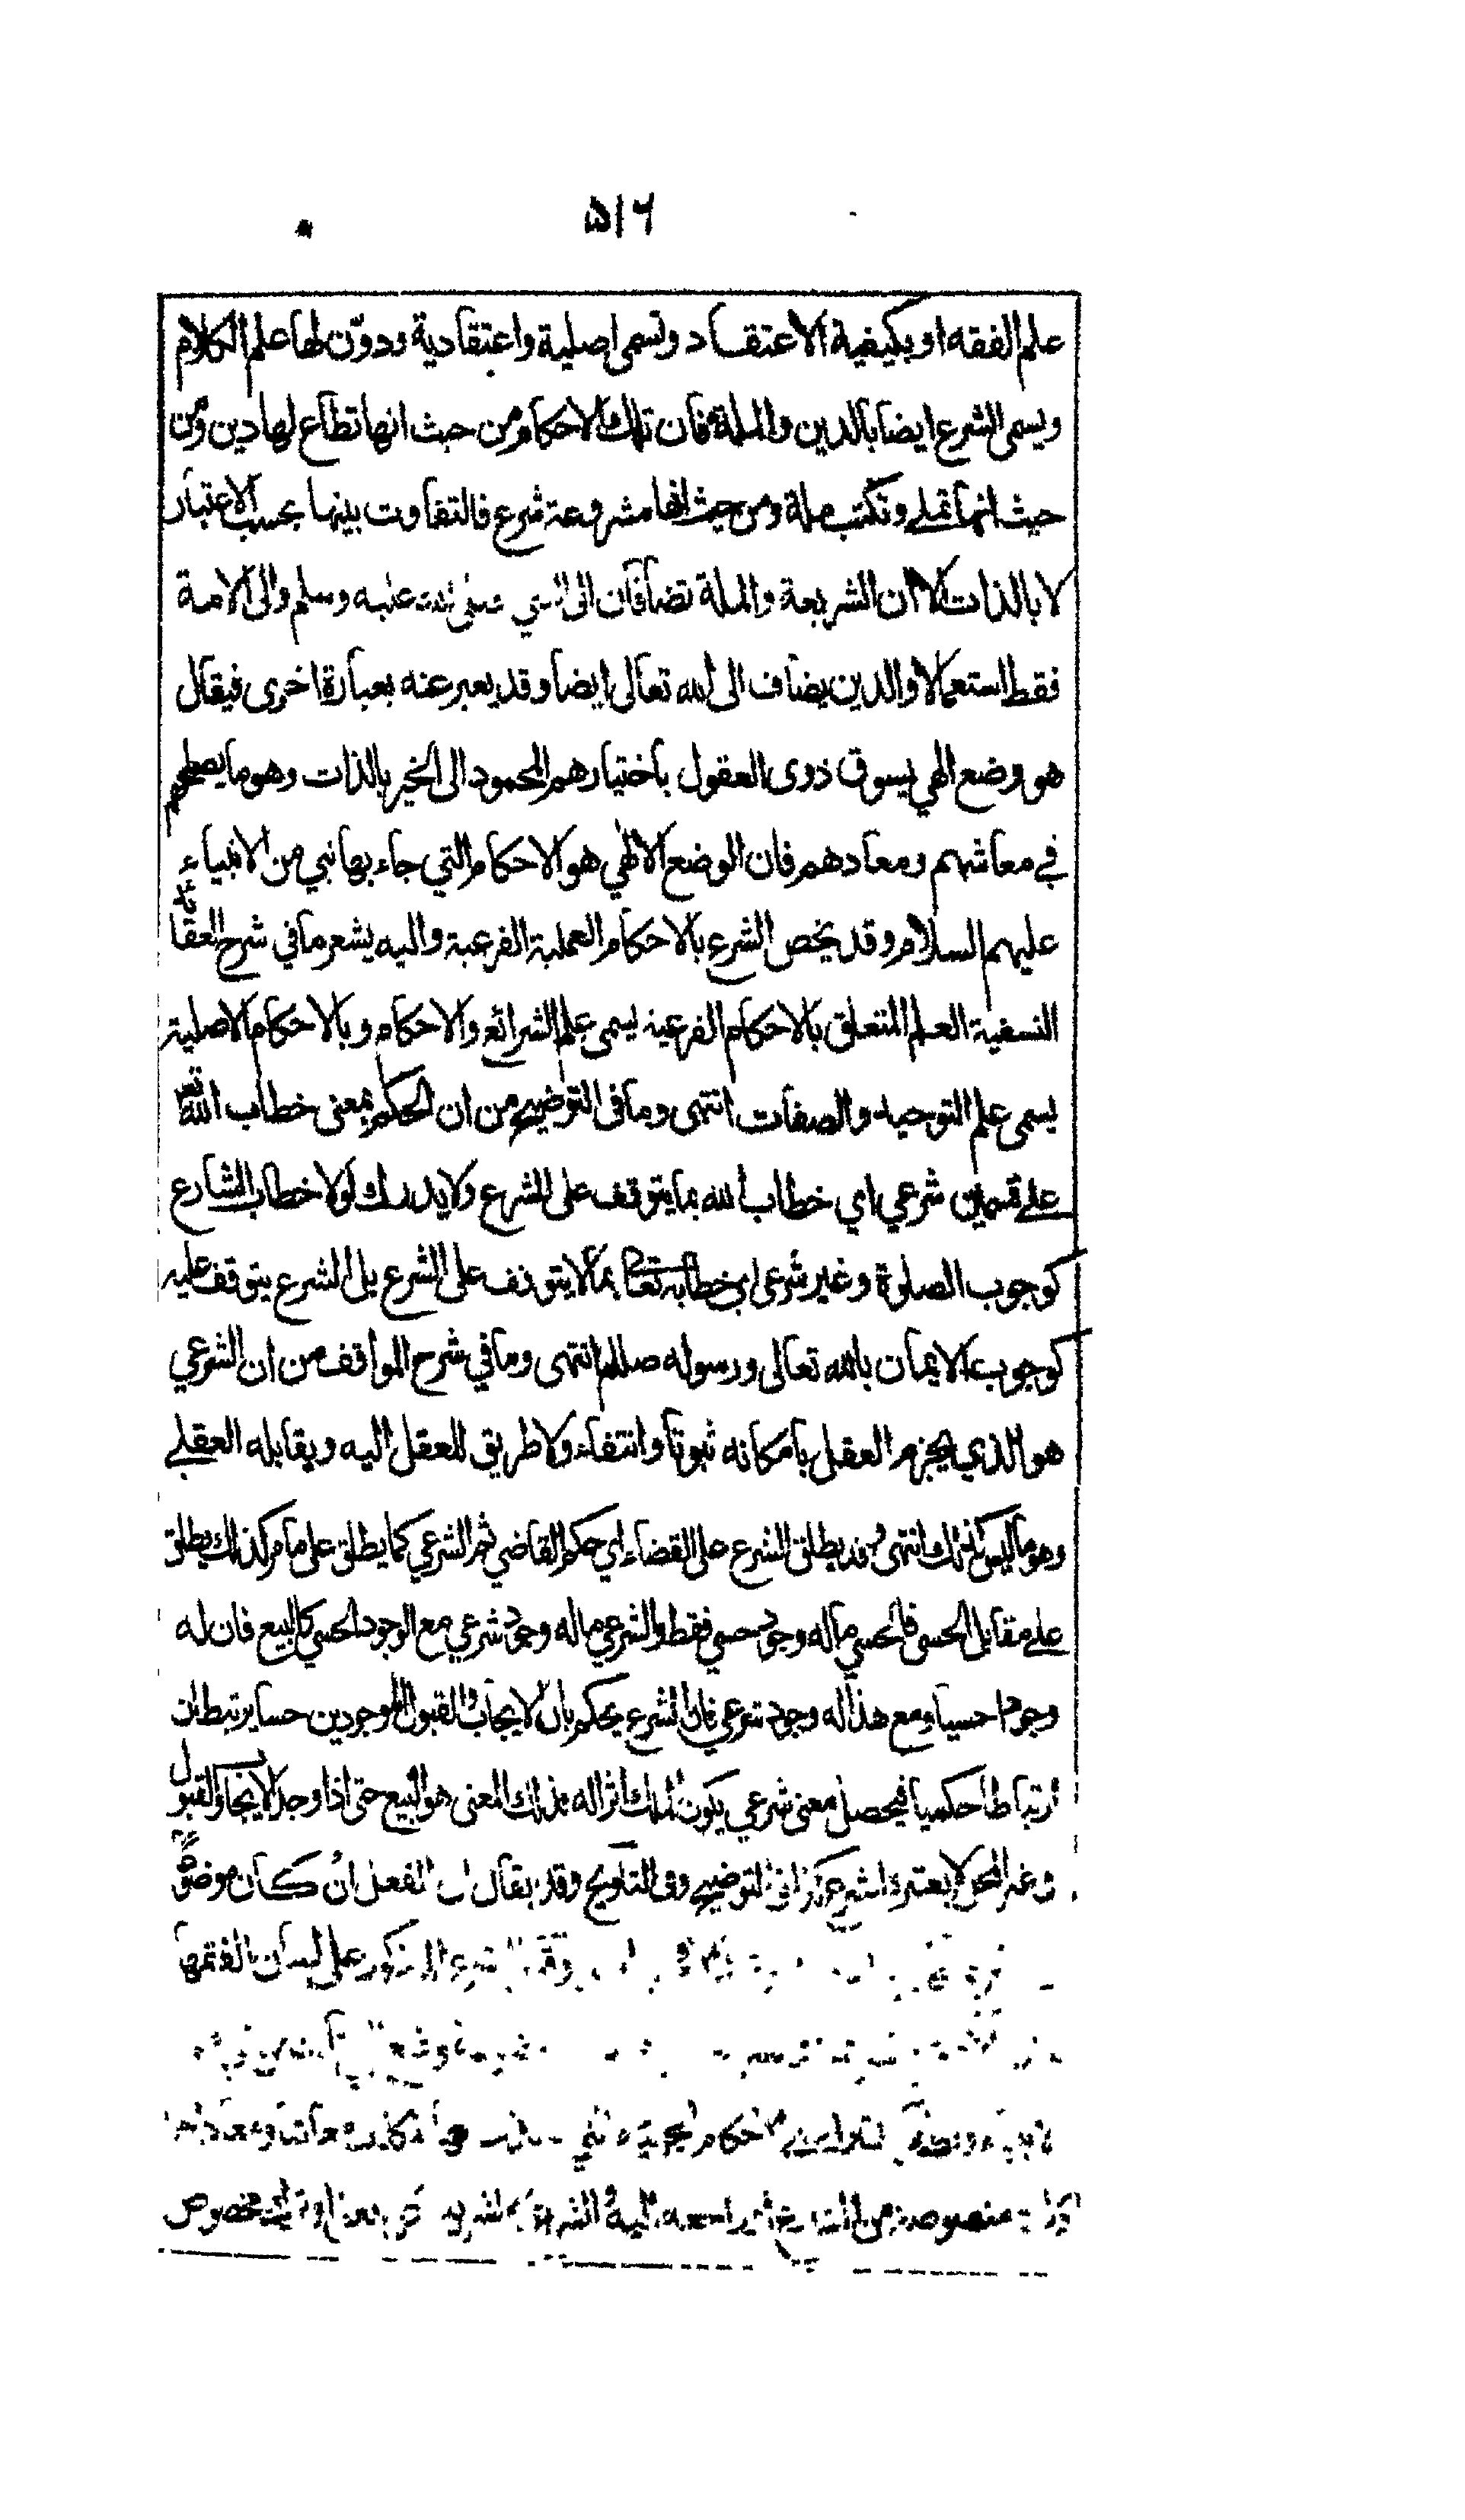 ۵۱۶
علم الفقه او بكيفية الاعتقاد وتسمى اصلية واعتقادية ودوّن لها علم الكلام
ويسمى الشرع ايضا بالدين والملة فان تلك الاحكام من حيث انها تطاع لها دين ومن
حيث انها تملى وتكتب ملة ومن حيث انها مشروعة شرع فالتفاوت بينها بحسب الاعتبار
لا بالذات الا ان الشريعة والملة تضافان الى النبي صلى الله عليه وسلم والى الامة
فقط استعمالا والدين يضاف الى الله تعالى ايضا وقد يعبر عنه بعبارة اخرى فيقال
هو وضع الهي يسوق ذوى العقول باختيارهم المحمود الى الخير بالذات وهو ما يصلحهم
في معاشهم ومعادهم فان الوضع الالهي هو الاحكام التي جاء بها نبي من الانبياء
عليهم السلام وقد يخص الشرع بالاحكام العملية الفرعية واليه يشعر ما في شرح العقائد
النسفية العلم المتعلق بالاحكام الفرعية يسمى علم الشرائع والاحكام وبالاحكام الاصلية
يسمى علم التوحيد والصفات انتهى وما فى التوضيح من ان الحكم بمعنى خطاب الله تع
على قسمين شرعي اي خطاب الله بما يتوقف على الشرع ولا يدرك لولا خطاب الشارع
كوجوب الصلوة وغير شرعى اي خطابه تعالى بما لا يتوقف على الشرع بل الشرع يتوقف عليه
كوجوب الايمان بالله تعالى ورسوله صللم انتهى وما في شرح المواقف من ان الشرعي
هو الذي يجزم العقل بامكانه ثبوتا وانتفاء ولا طريق للعقل اليه ويقابله العقلي
وهو ما ليس كذلك انتهى وقد يطلق الشرع على القضاء اي حكم القاضي ثم الشرعي كما يطلق على ما مر كذلك يطلق
على مقابل الحسى فالحسي ما له وجود حسي فقط والشرعي ما له وجود شرعي مع الوجود الحسي كالبيع فان له
وجودا حسيا ومع هذا له وجود شرعي فان الشرع يحكم بان الايجاب والقبول الموجودين حسا يرتبطان
ارتباطا حكميا فيحصل معنى شرعي يكون الملك اثرا له فذلك المعنى هو البيع حتى اذا وجد الايجاب والقبول
في غير المحل لا يعتبره الشرع كذا فى التوضيح وفى التلويح وقد يقال ان الفعل ان كان موضوعا
الشرع المذكور على لسان الفقهاء
الاحكام الجزئية التي
منصوصة من الشارع الشرع مخصوص